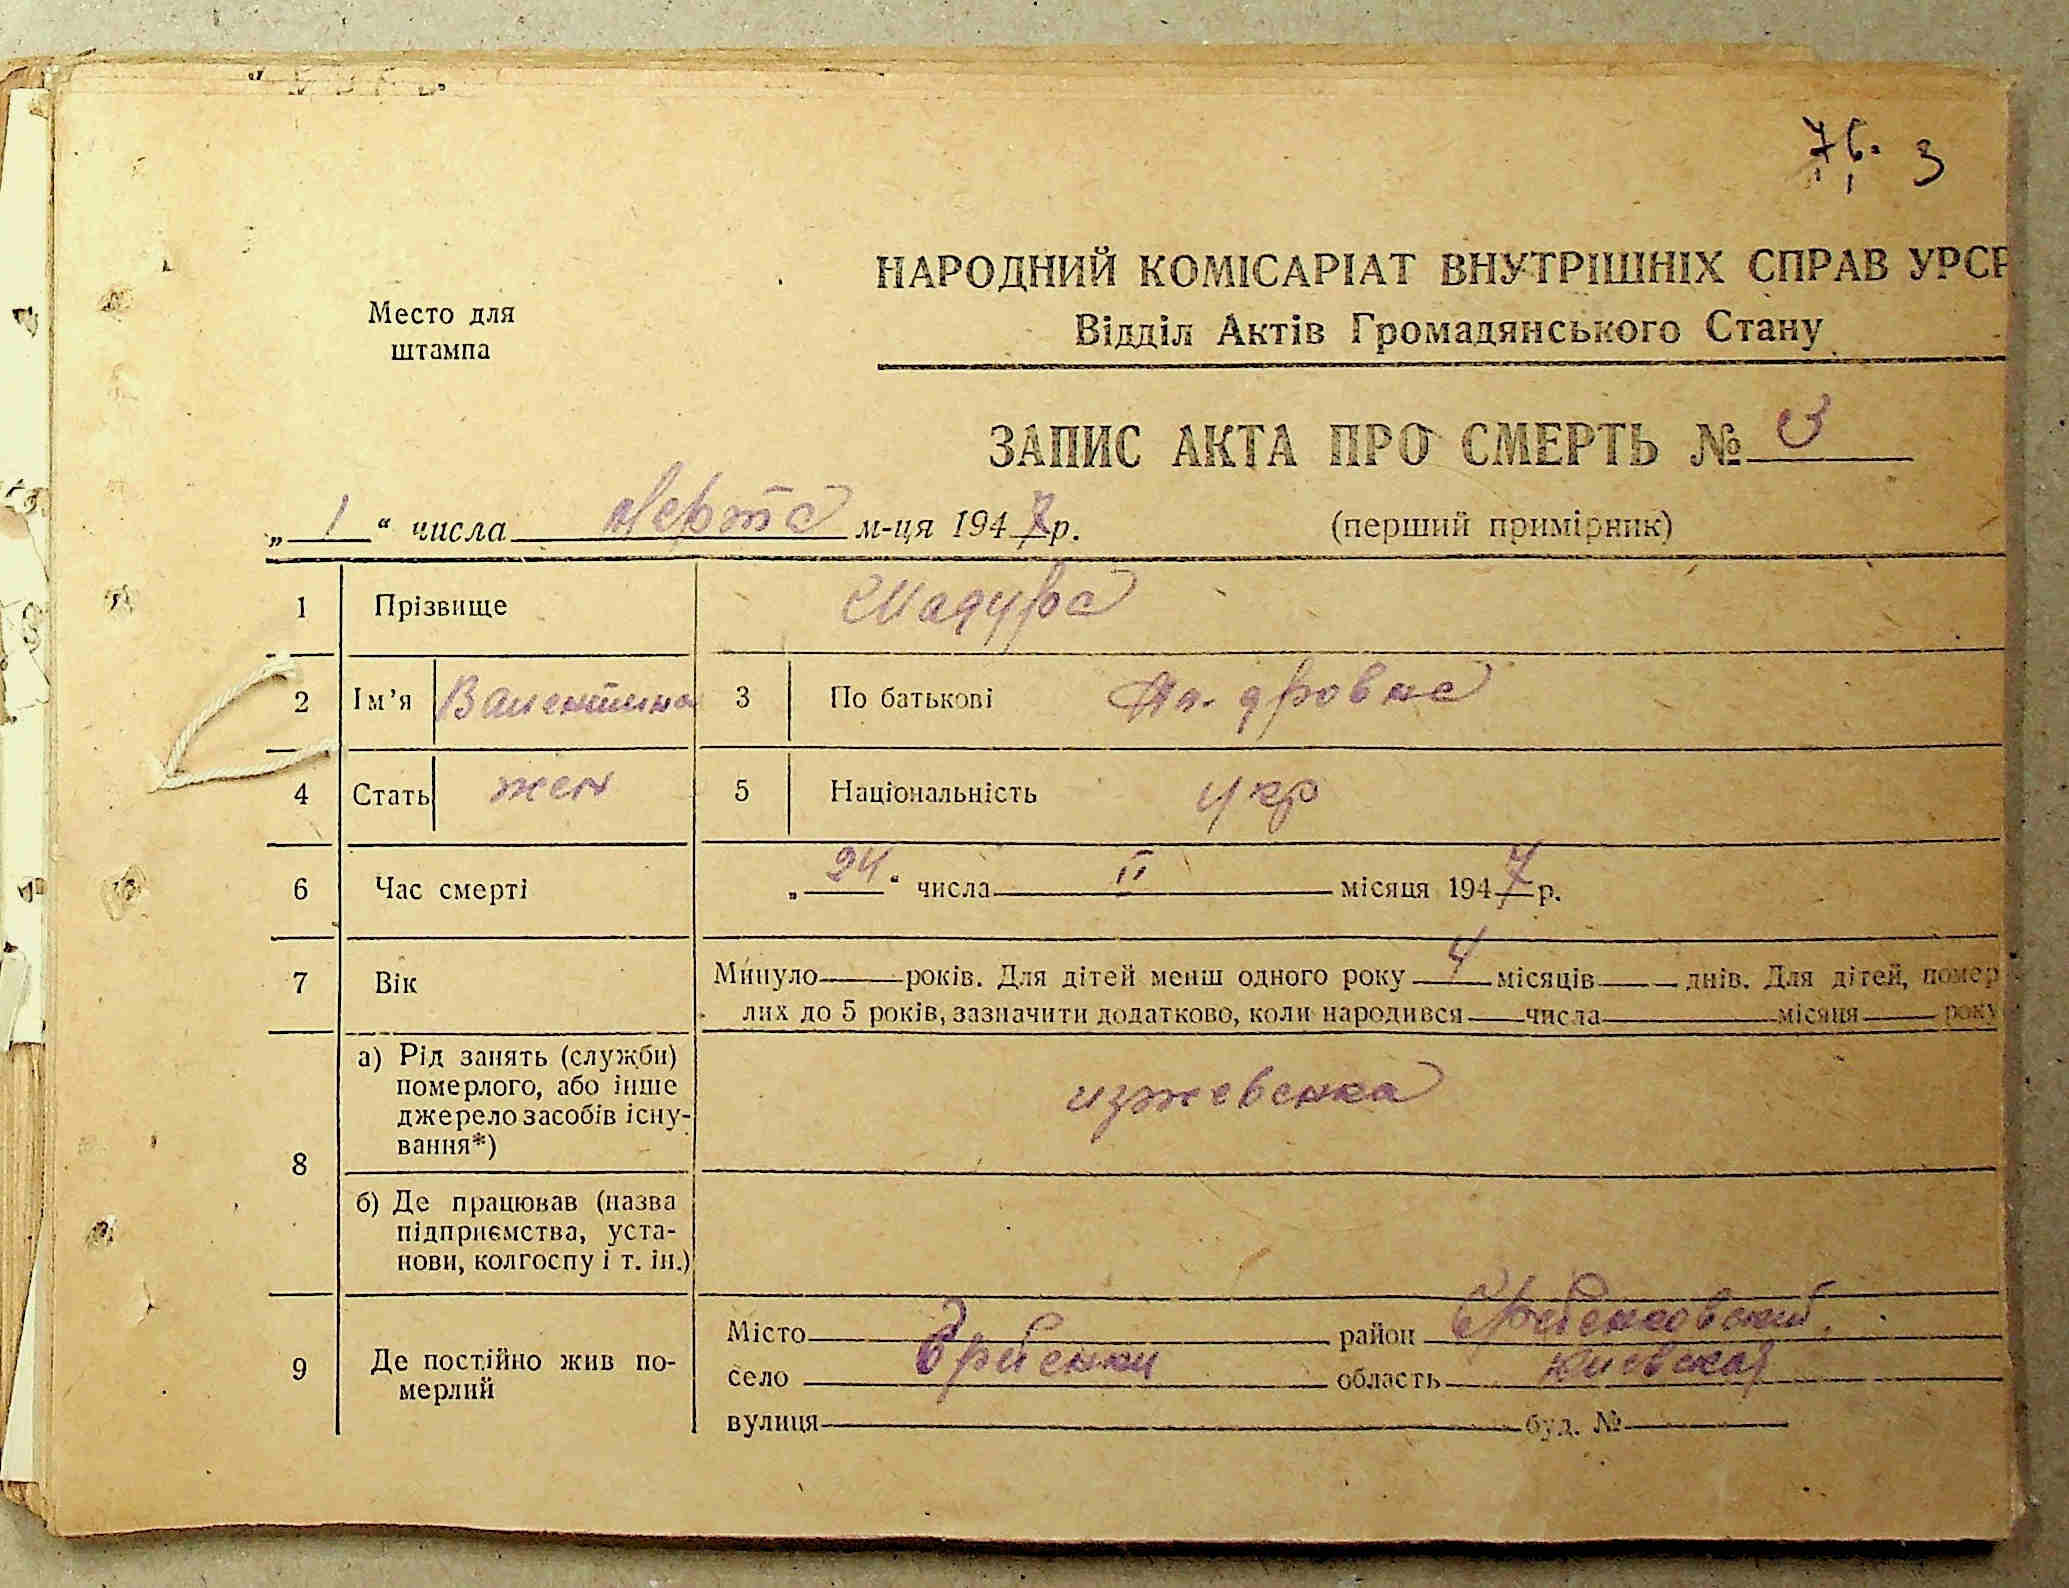 76. 3
НАРОДНИЙ КОМІСАРІАТ ВНУТРІШНІХ СПРАВ УРСР
Відділ Актів Громадянського Стану
Место для
штампа
ЗАПИС АКТА ПРО СМЕРТЬ № 3
„ 1 “ числа Марта м-ця 1947 р.
(перший примірник)
1 Прізвище
2 Ім’я Валентина 3 По батькові
4 Стать жен 5 Національність укр
6 Час смерті „ 24 “ числа II місяця 1947 р.
7 Вік Минуло років. Для дітей менш одного року 4 місяців днів. Для дітей, помер
лих до 5 років, зазначити додатково, коли народився числа місяця року
8 а) Рід занять (служби)
померлого, або інше
джерело засобів існу-
вання*)
изжевенка
б) Де працював (назва
підприємства, уста-
нови, колгоспу і т. ін.)
9 Де постійно жив по-
мерлий
Місто район
село область Киевская
вулиця буд. №